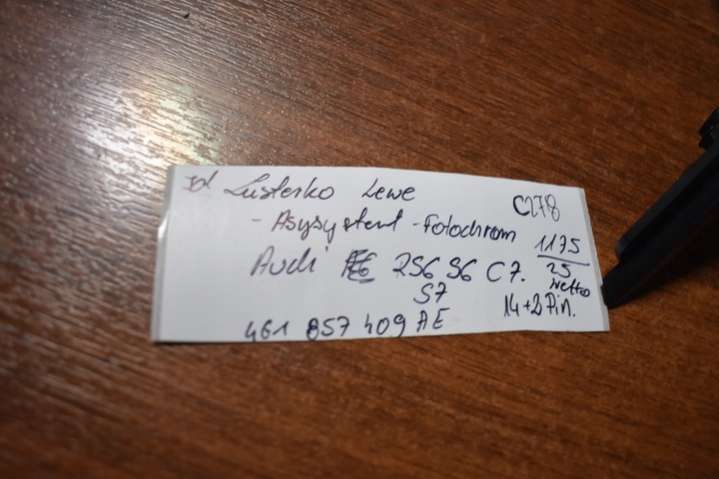 Lusterko Lewe
C278
- Asysystent - Fotochrom
1175
25
netto
Audi RS6 S6 C7.
S7
14+2 Pin.
4G1 857 409 AE